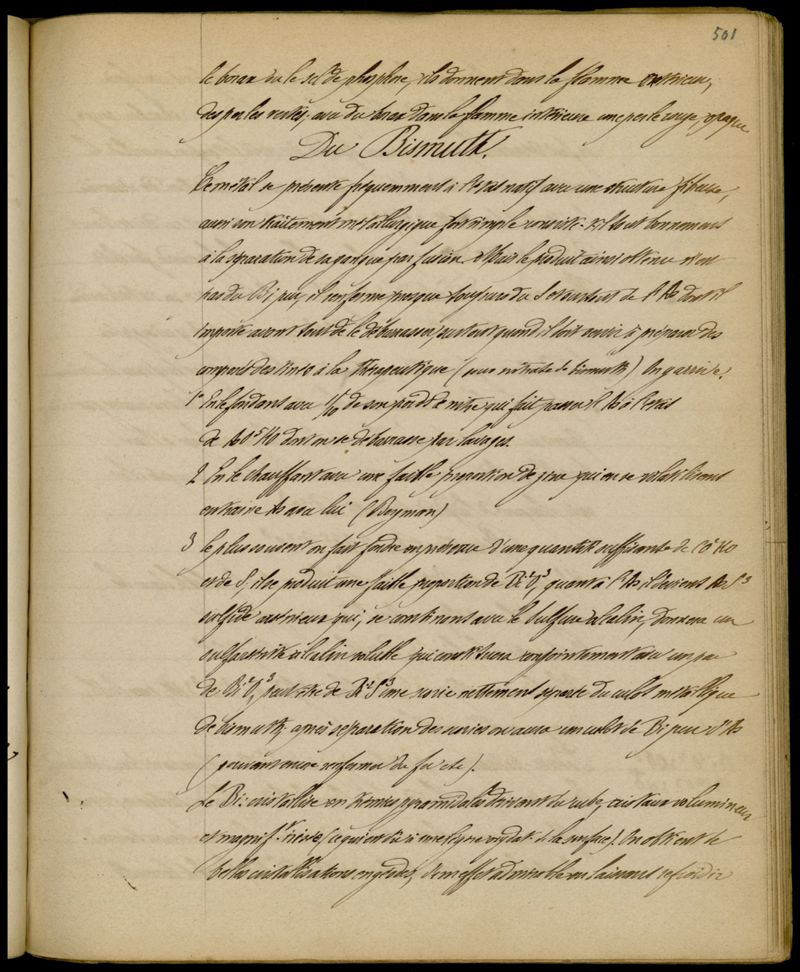 501
le borax ou le sel de phosphore, ils donnent dans la flamme extérieure,
des perles vertes, avec du borax dans la flamme intérieure une perle rouge, opaque
Du Bismuth.
Ce métal se présente fréquemment à l'état natif avec une structure fibreuse,
aussi son traitement métallurgique fort simple consiste-t-il tout bonnement
à la séparation de sa gangue par fusion. Mais le produit ainsi obtenu n'est
pas du Bi pur, il renferme presque toujours du S et surtout de l'As dont il
importe avant tout de le débarrasser surtout quand il doit servir à préparer des
composés destinés à la thérapeutique (sous nitrate de bismuth) On y arrive.
1° En le fondant avec 1/10 de son poids de nitre qui fait passer l'As à l'état
de AsO5KO dont on se débarrasse par lavages.
2 En le chauffant avec une faible proportion de zinc qui en se volatilisant
entraine As avec lui
3 le plus souvent on fait fondre en présence d'une quantité suffisante de CO2KO
et de S, il se produit une faible proportion de Bi2O3, quant à l'As il devient AsS3
sulfide arsénieux qui, se combinant avec le sulfure alcalin, donnera un
sulfarsénite alcalin soluble qui constituera conjointement avec un peu
de Bi2O3, peut-être de Bi2S3 une scorie nettement séparée du culot métallique
de bismuth, après séparation des scories on aura un culot de Bi pur d'As
(pouvant encore renfermer du fer etc).
Le Bi: cristallise en trémies pyramidales dérivant du cube, cristaux volumineux
et magnif.t irisés (ce qui est dû à une légère oxydat. de la surface). On obtient de
belles cristallisations en géodes, d'un effet admirable en laissant refroidir